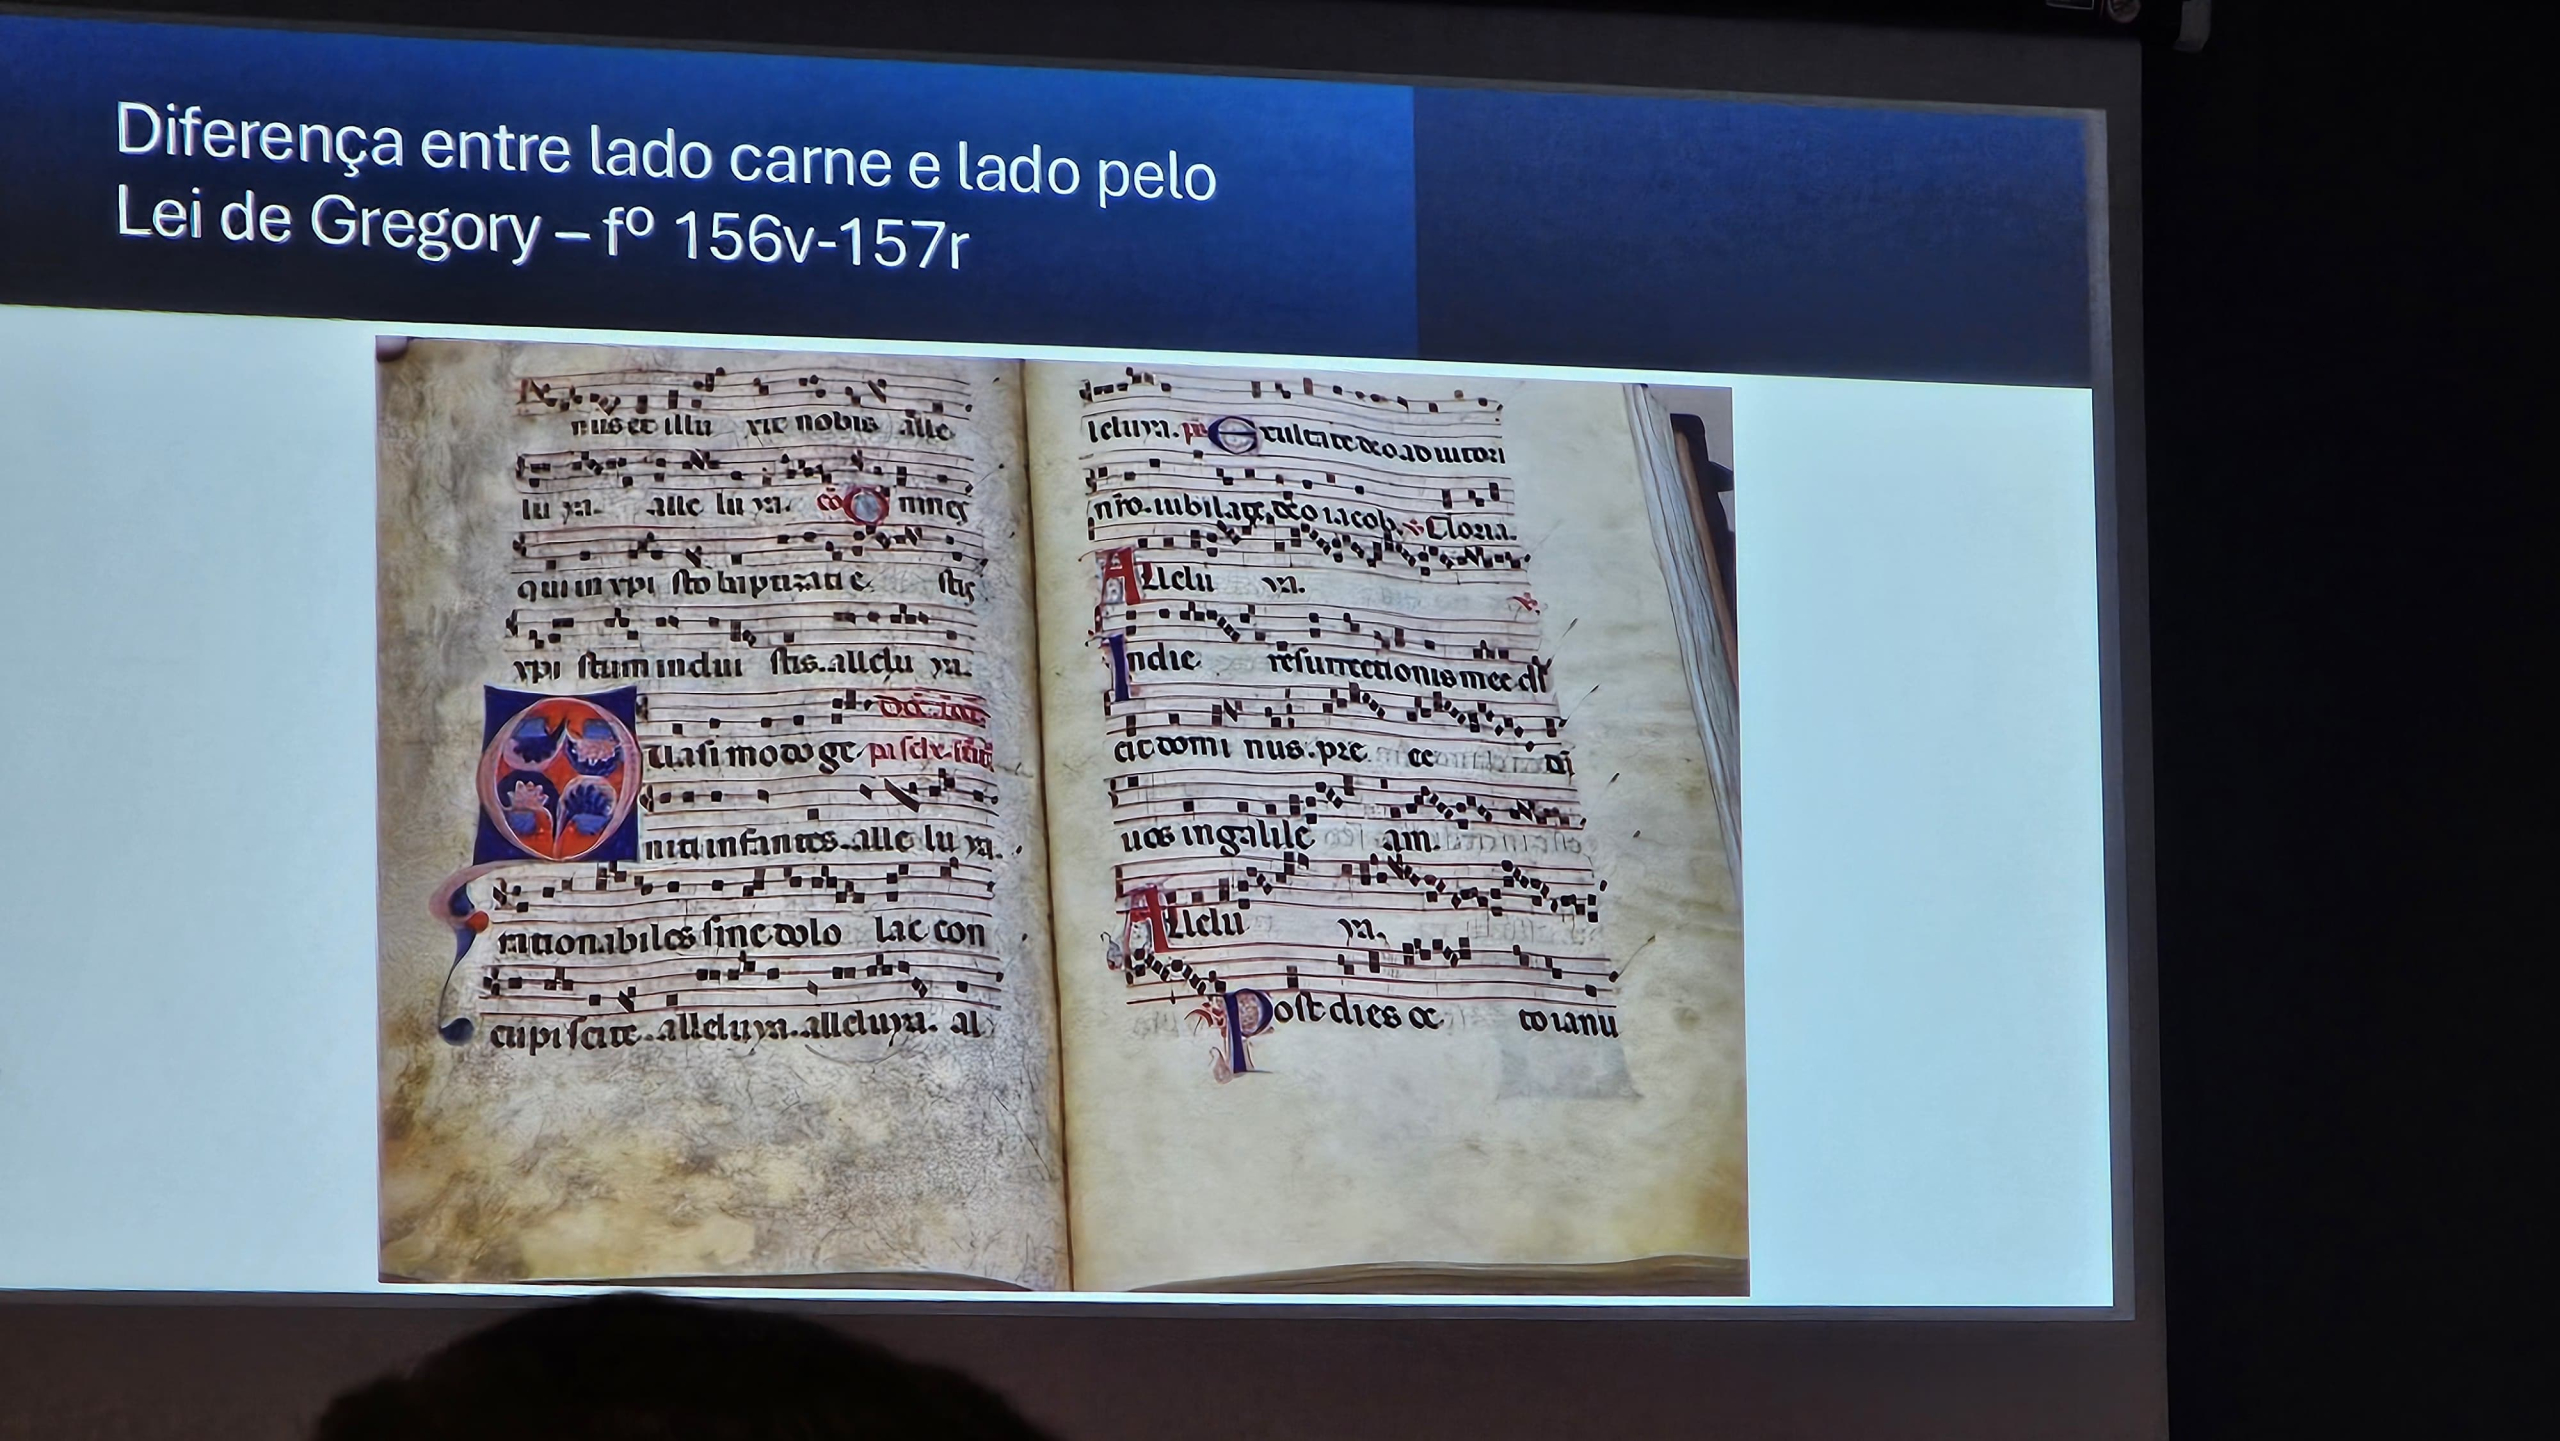 Diferença entre lado carne e lado pelo
Lei de Gregory – fº 156v-157r
nus et illu xit nobis alle
lu ya. alle lu ya. cō Omnes
qui in xpi sto baptizati e stis
xpi stum indui stis. allelu ya.
Quasi modo ge
niti infantes. alle lu ya.
rationabiles sine dolo lac con
cupiscite. alleluya. alleluya. al
leluya. ps Exultate deo adiutori
nr̄o. iubilate deo iacob. Gloria.
Allelu ya.
In die resurrectionis mee di
cit domi nus. pre ce
uos in galile am.
Allelu ya.
Post dies oc to ianu